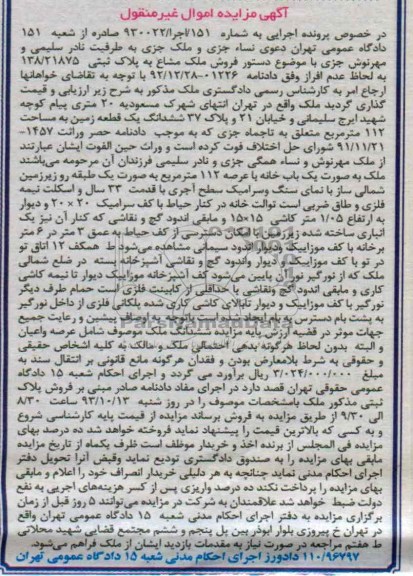 آگهی مزایده اموال غیرمنقول
در خصوص پرونده اجرایی به شماره ۱۵۱/اجرا/۹۳۰۰۲۲ صادره از شعبه ۱۵۱
دادگاه عمومی تهران دعوی نساء جزی و ملک جزی به طرفیت نادر سلیمی و
مهرنوش جزی با موضوع دستور فروش ملک مشاع به پلاک ثبتی ۱۳۸/۲۱۸۷۵
به لحاظ عدم افراز وفق دادنامه ۰۱۲۲۶-۹۲/۱۲/۲۸ با توجه به تقاضای خواهانها
ارجاع امر به کارشناس رسمی دادگستری ملک مذکور به شرح زیر ارزیابی و قیمت
گذاری گردید ملک واقع در تهران انتهای شهرک مسعودیه ۲۰ متری پیام کوچه
شهید ایرج سلیمانی و خیابان ۲۱ و پلاک ۳۷ ششدانگ یک قطعه زمین به مساحت
۱۱۲ مترمربع متعلق به تاجماه جزی که به موجب دادنامه حصر وراثت ۱۴۵۷-
۹۱/۱۱/۲۱ شورای حل اختلاف فوت کرده است و وراث حین الفوت ایشان عبارتند
از ملک مهرنوش و نساء همگی جزی و نادر سلیمی فرزندان آن مرحومه می‌باشند
ملک به صورت یک باب خانه با عرصه ۱۱۲ مترمربع به صورت یک طبقه رو زیرزمین
شمالی ساز با نمای سنگ وسرامیک سطح آجری با قدمت ۳۳ سال و اسکلت نیمه
فلزی و طاق ضربی است توالت خانه در کنار حیاط با کف سرامیک ۲۰ × ۲۰ و دیوار
به ارتفاع ۱/۰۵ متر کاشی ۱۵×۱۵ و مابقی اندود گچ و نقاشی که کنار آن نیز یک
انباری ساخته شده زیرزمین با امکان دسترسی از کف حیاط به عمق ۳ متر در ۶ متر
برخانه با کف موزاییک ودیوار اندود سیمانی مشاهده می‌شود ط همکف ۱۲ اتاق تو
در تو با کف موزاییک و دیوار واندود گچ و نقاشی آشپزخانه بسته در ضلع شمالی
ملک که از نورگیر نورآن پایین می‌شود کف آشپزخانه موزاییک دیوار تا نیمه کاشی
کاری و مابقی اندود گچ ونقاشی با حداقلی از کابینت فلزی است حمام طرف دیگر
نورگیر با کف موزاییک و دیوار تابالای کاشی کاری شده پلکانی فلزی از داخل نورگیر
به پشت بام دسترسی به بام ایجاد شده است باتوجه به اوصاف پیشین و رعایت جمیع
جهات موثر در قضیه ارزش پایه مزایده ششدانگ ملک موصوف شامل عرصه واعیان
و البته بدون لحاظ هرگونه بدهی احتمالی ملک و مالک به کلیه اشخاص حقیقی
و حقوقی به شرط بلامعارض بودن و فقدان هرگونه مانع قانونی بر انتقال سند به
مبلغ ۳/۰۲۴/۰۰۰/۰۰۰ ریال برآورد می گردد و اجرای احکام شعبه ۱۵ دادگاه
عمومی حقوقی تهران قصد دارد در اجرای مفاد دادنامه صادر مبنی بر فروش پلاک
ثبتی مذکور ملک باشخصات موصوف را در روز شنبه ۹۳/۱۰/۱۳ ساعت ۸/۳۰
الی ۹/۳۰ از طریق مزایده به فروش برساند مزایده از قیمت پایه کارشناسی شروع
و به کسی که بالاترین قیمت را پیشنهاد نماید فروخته خواهد شد ده درصد بهای
مزایده فی المجلس از برنده اخذ و خریدار موظف است ظرف یکماه از تاریخ مزایده
مابقی بهای مزایده را به صندوق دادگستری تودیع نماید وقبض آنرا تحویل دفتر
اجرای احکام مدنی نماید چنانچه به هر دلیلی خریدار انصراف خود را اعلام و مابقی
بهای مزایده را پرداخت نکند ده درصد واریزی پس از کسر هزینه‌های اجرایی به نفع
دولت ضبط خواهد شد علاقمندان به شرکت در مزایده می‌توانند ۵ روز قبل از زمان
برگزاری مزایده به دفتر اجرای احکام مدنی شعبه ۱۵ دادگاه عمومی تهران واقع
در تهران خ پیروزی بلوار ابوذر بین پل پنجم و ششم مجتمع قضایی شهید محلاتی
ط هفتم مراجعه در صورت نیاز به مقدمات بازدید ایشان از ملک فراهم می‌شود.
۱۱۰/۹۶۷۹۷ دادورز اجرای احکام مدنی شعبه ۱۵ دادگاه عمومی تهران